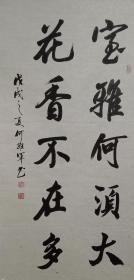 室雅何須大
花香不在多
戊戌之夏何